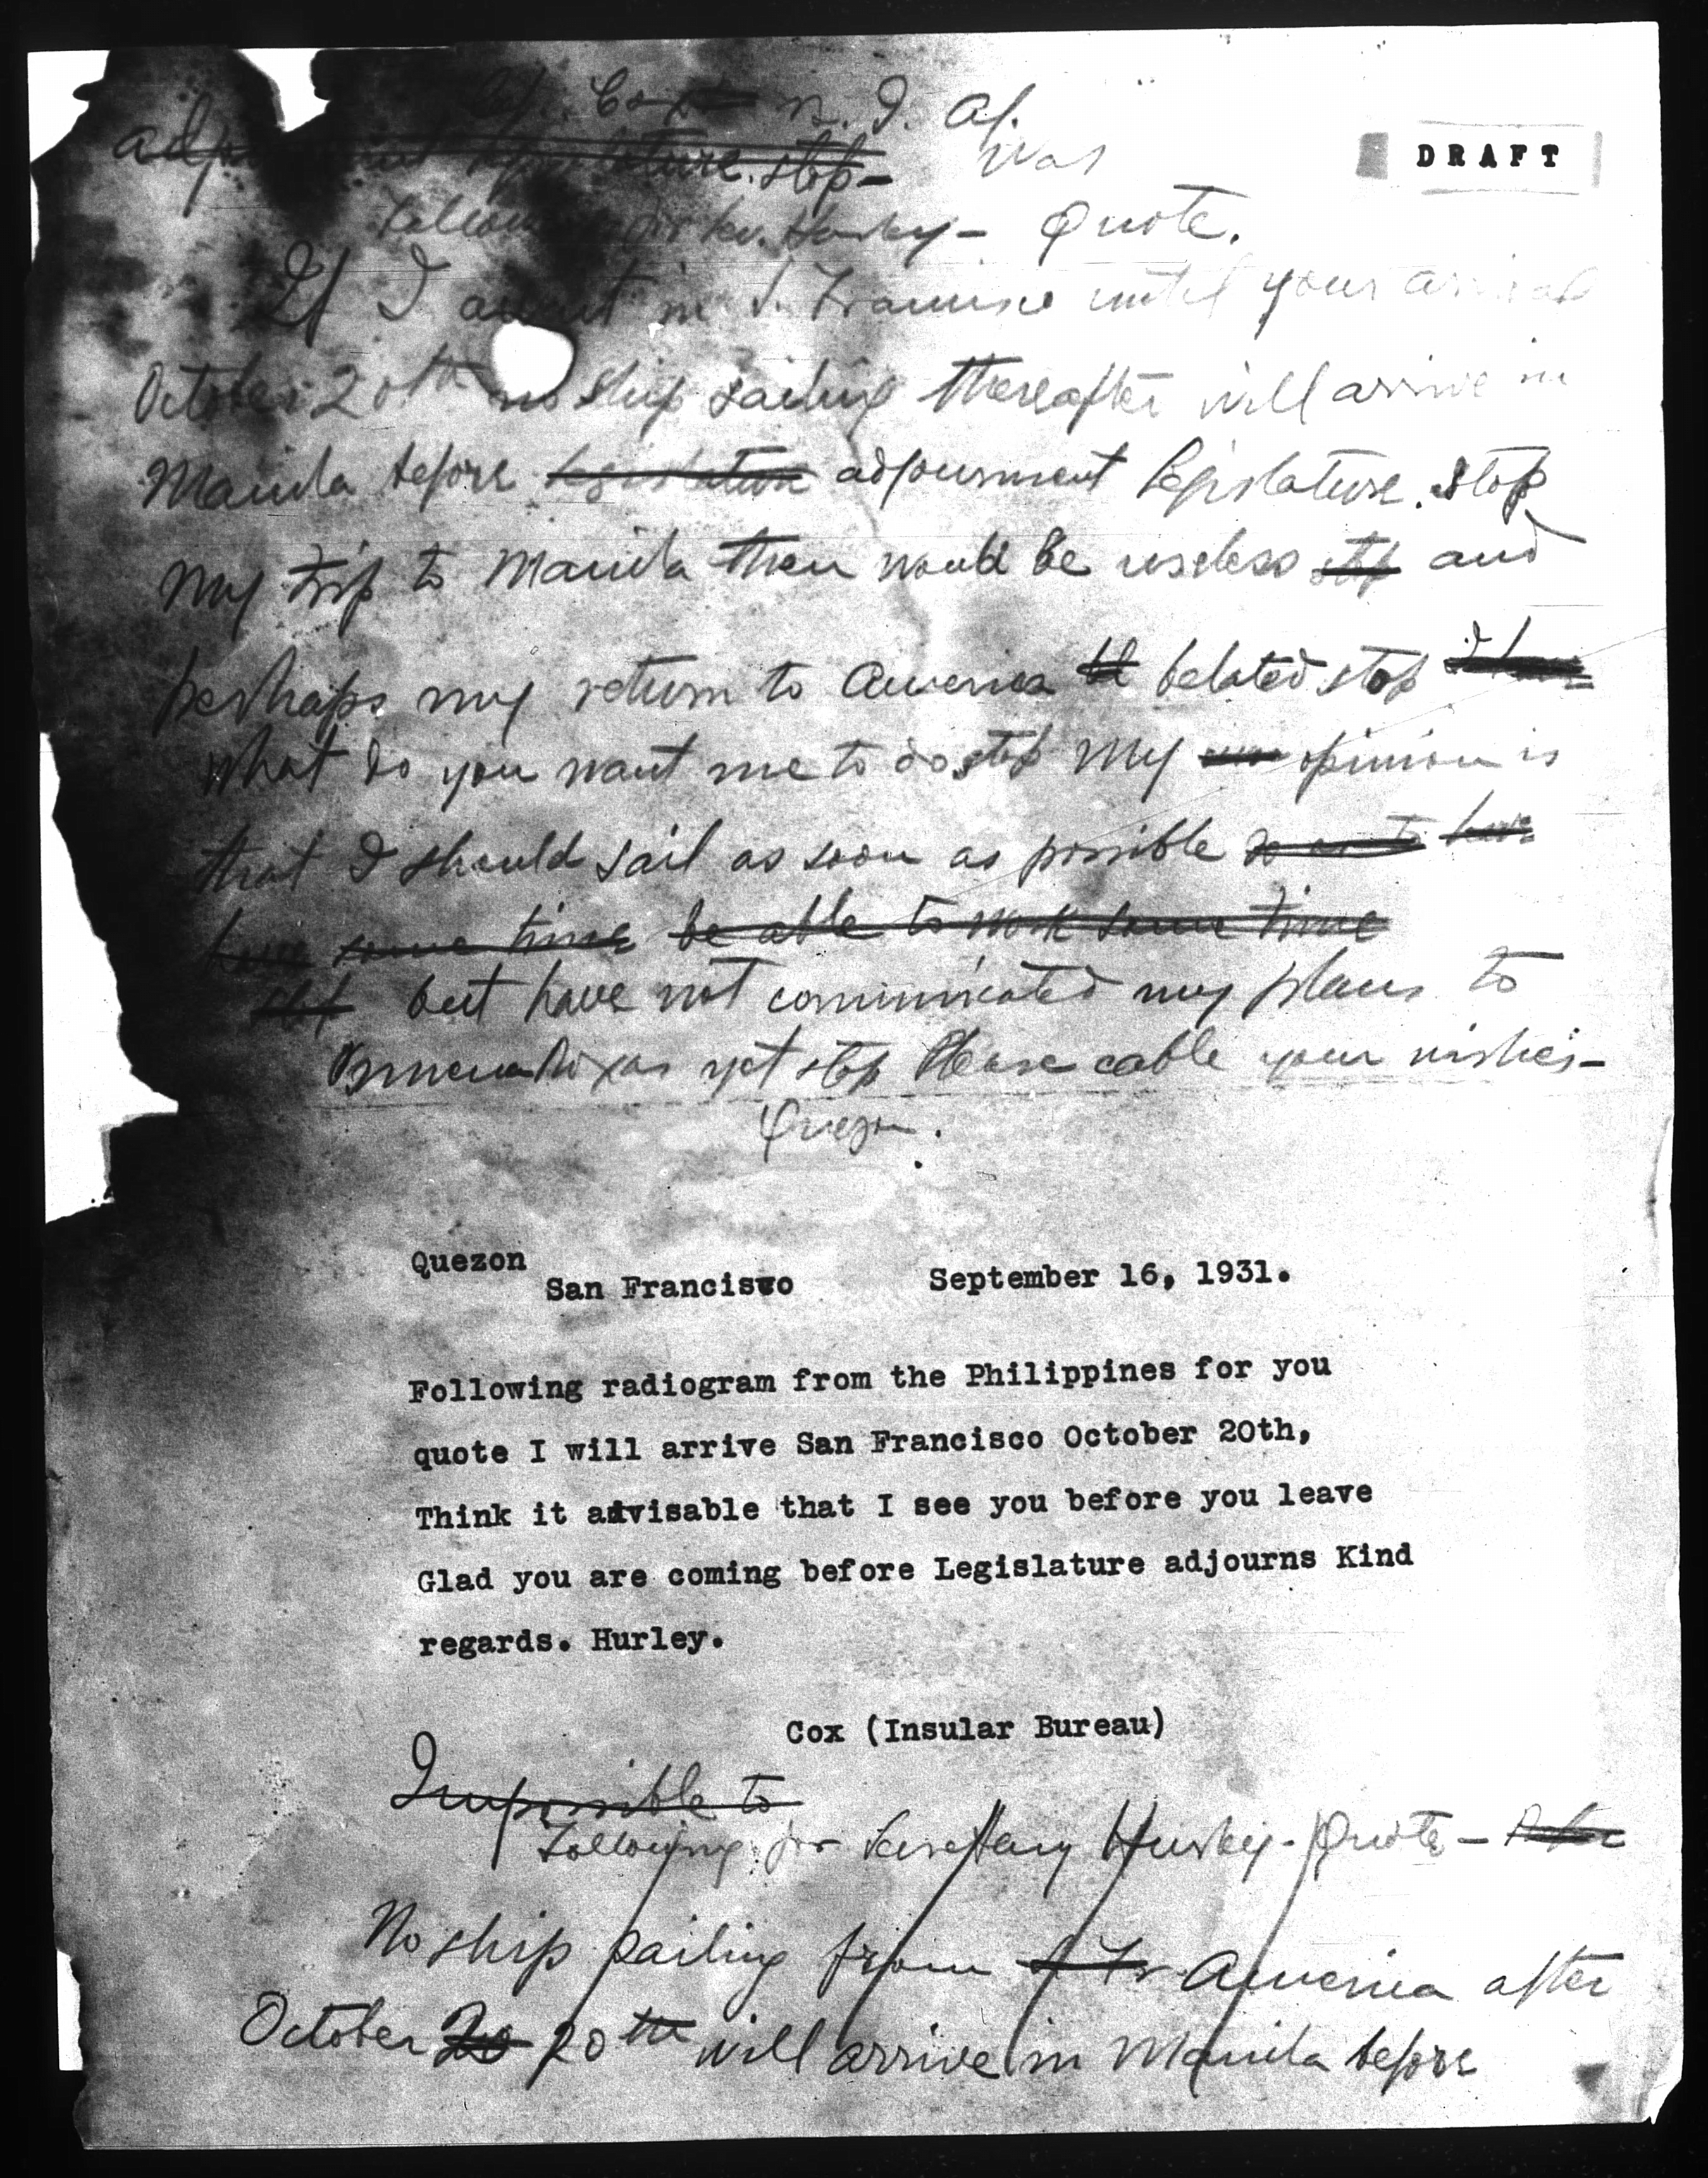 Cox n. I. Af.
DRAFT
adjournment Legislature. stop-
Was
Following for Sec. Hurley- Quote.
If I await in S. Francisco until your arrival
October 20th no ship sailing thereafter will arrive in
Manila before legislature adjournment Legislature. stop
my trip to Manila then would be useless stop and
perhaps my return to America belated stop I have
what do you want me to do stop My opinion is
that I should sail as soon as possible so as to have
have some time be able to work some time
stop but have not communicated my plans to
Osmena Roxas yet stop Please cable your wishes-
Quezon.
Quezon
San Francisvo September 16, 1931.
Following radiogram from the Philippines for you
quote I will arrive San Francisco October 20th,
Think it advisable that I see you before you leave
Glad you are coming before Legislature adjourns Kind
regards. Hurley.
Cox (Insular Bureau)
Impossible to
Following for Secretary Hurley- Quote- After
No ship sailing from S. Fr. America after
October 20 20th will arrive in Manila before